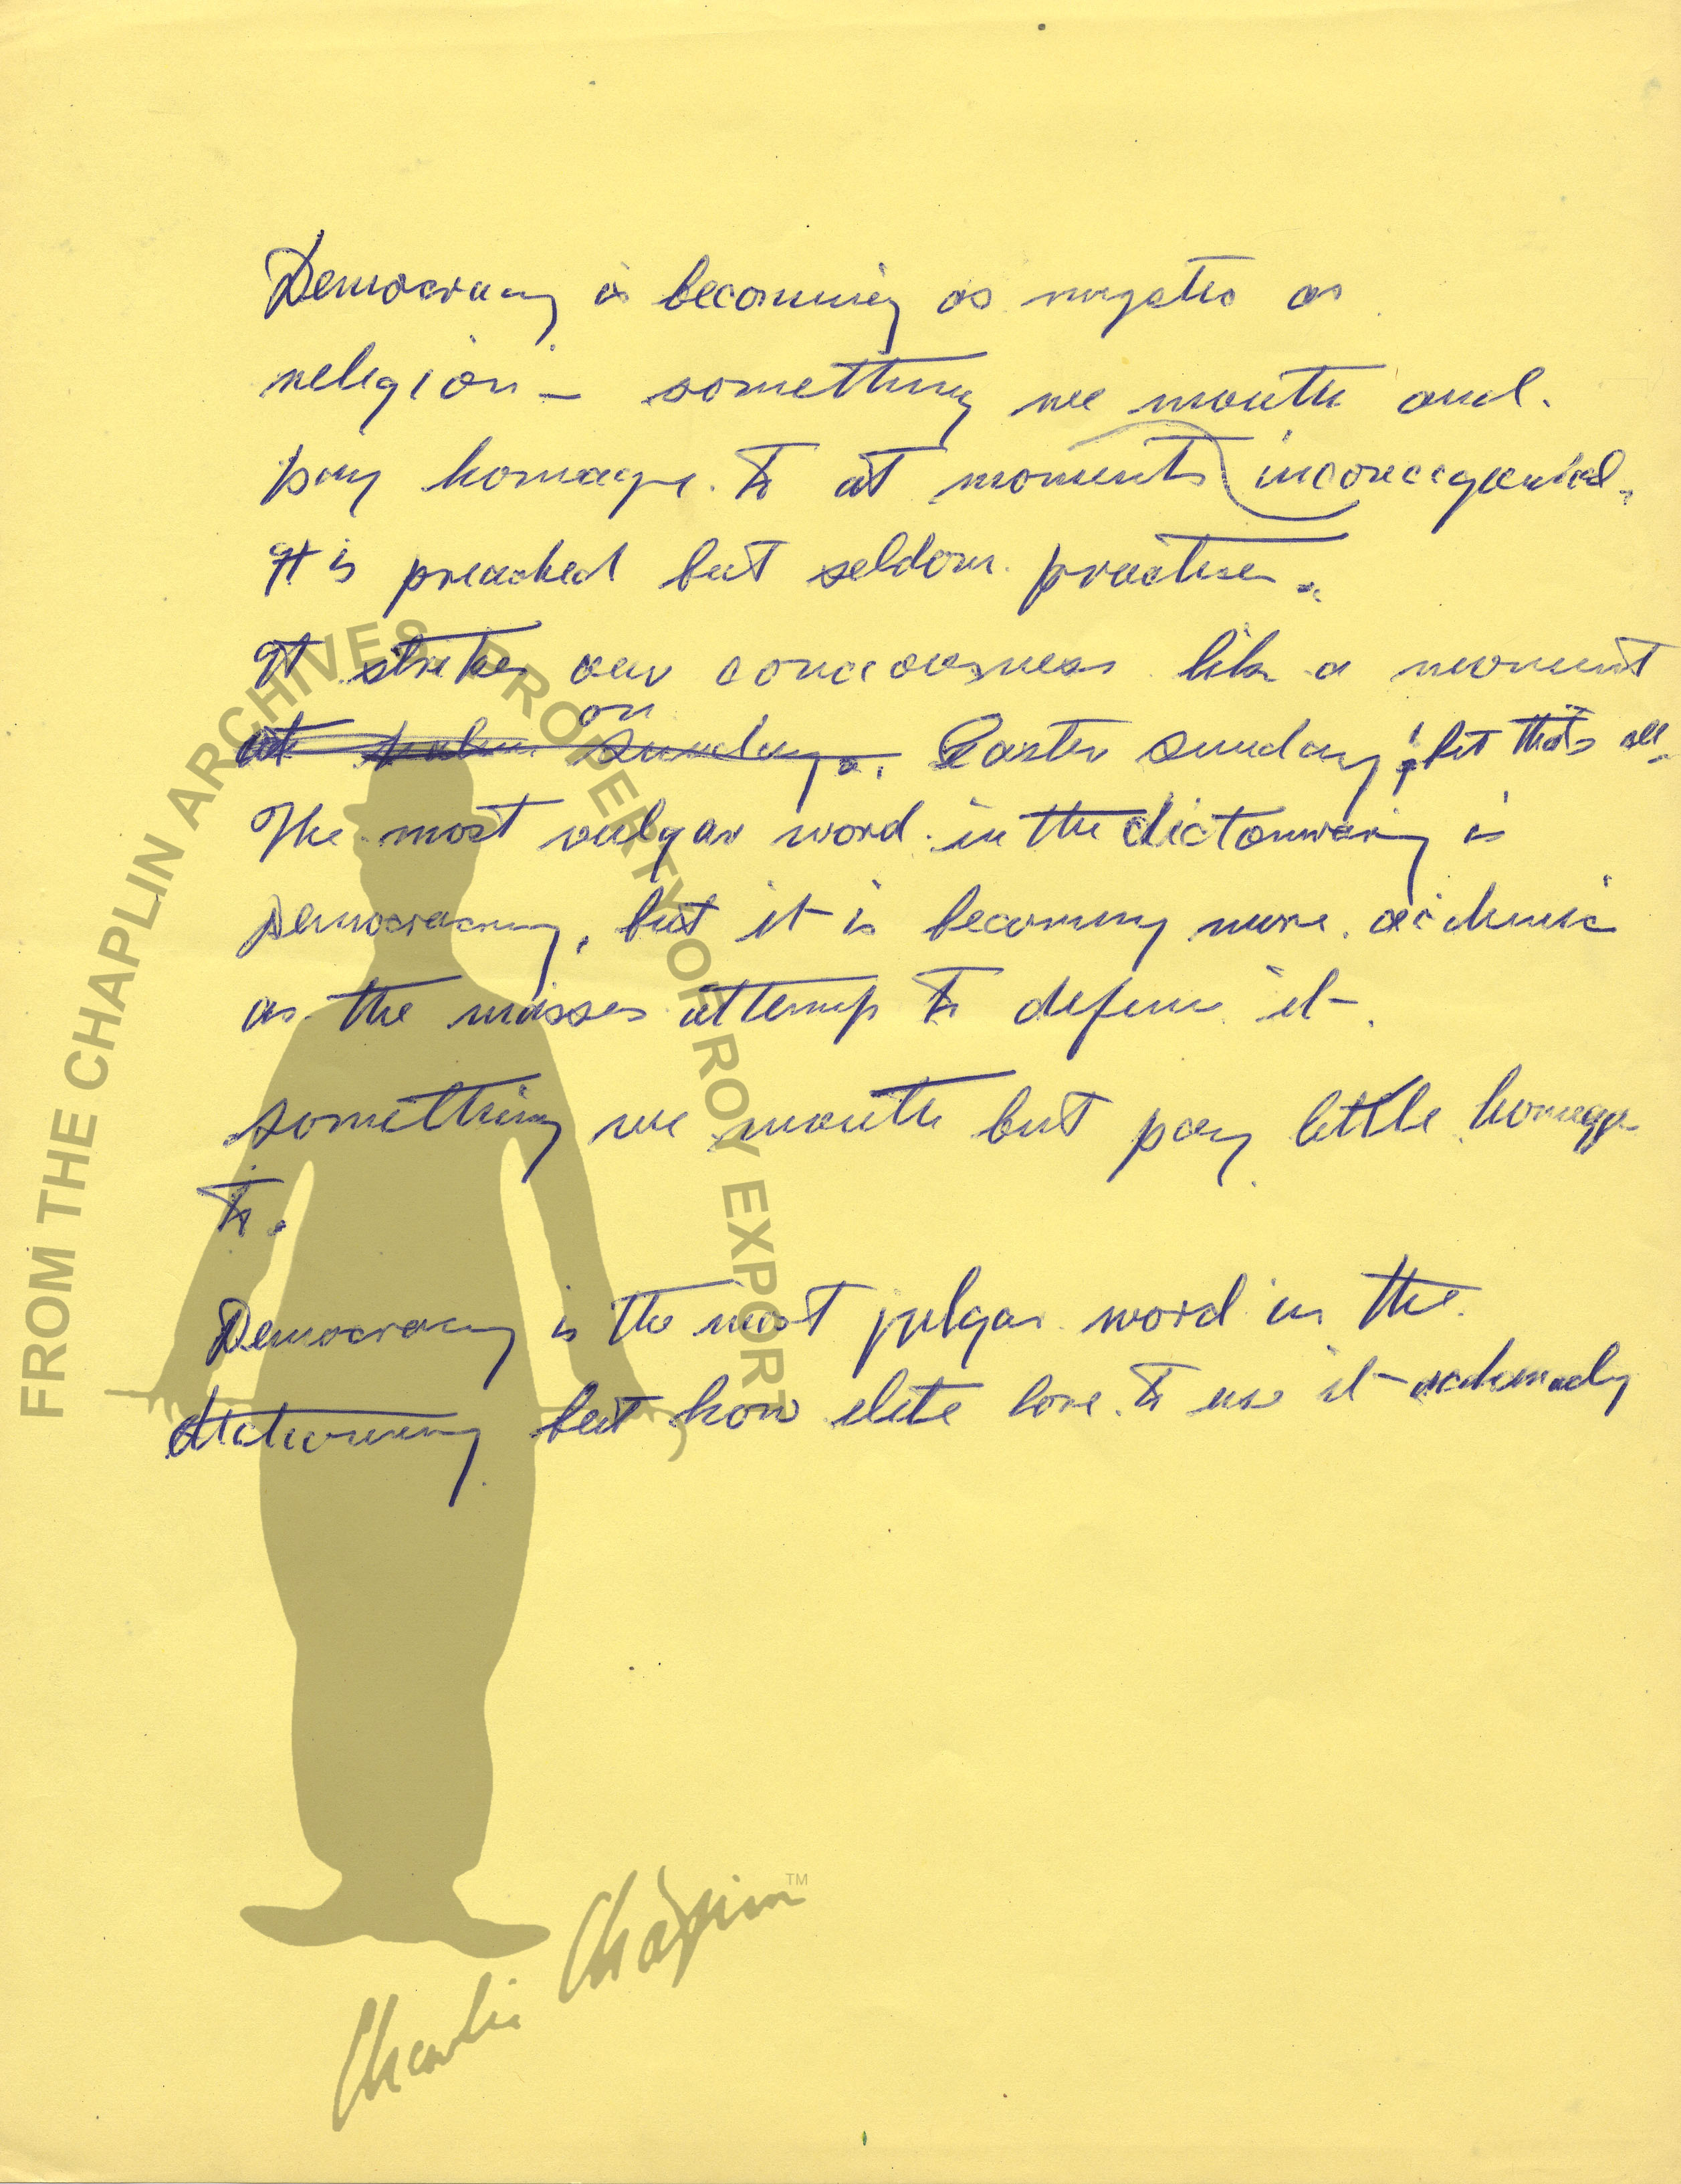 Democracy is becoming as mystic as
religion – something we mouth and
pay homage to at moments
It is preached but seldom practise.
It strikes our conciousness like a moment
at Sunday. on Easter Sunday, but that's all.
The most vulgar word in the dictonary is
Democracy, but it is becoming more
as the masses attemp to define it.
something we mouth but pay little homage
to.
Democracy is the most vulgar word in the
dictionary but how elite love to use it
FROM THE CHAPLIN ARCHIVES PROPERTY OF ROY EXPORT
Charlie Chaplin™